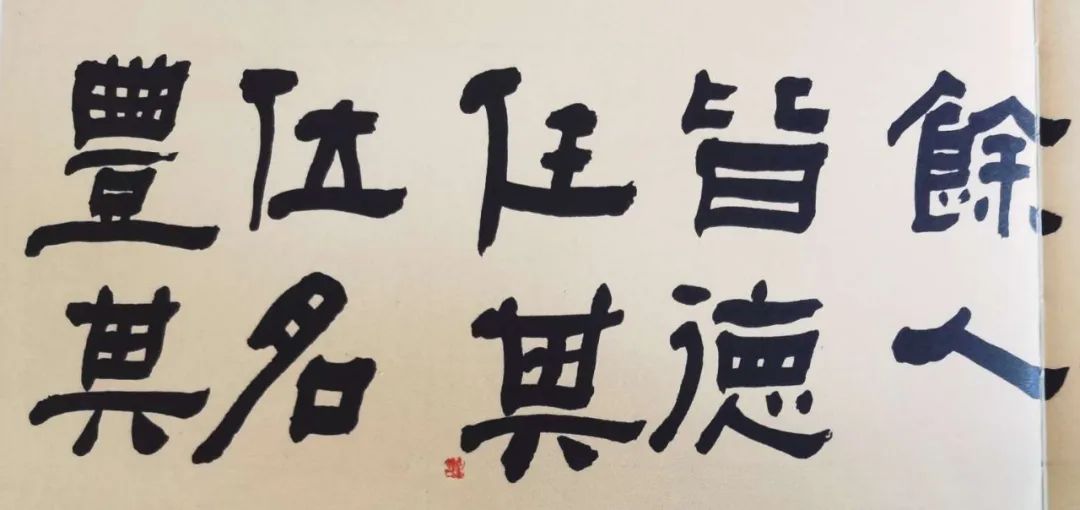 餘人
皆德
任其
位名
豐其